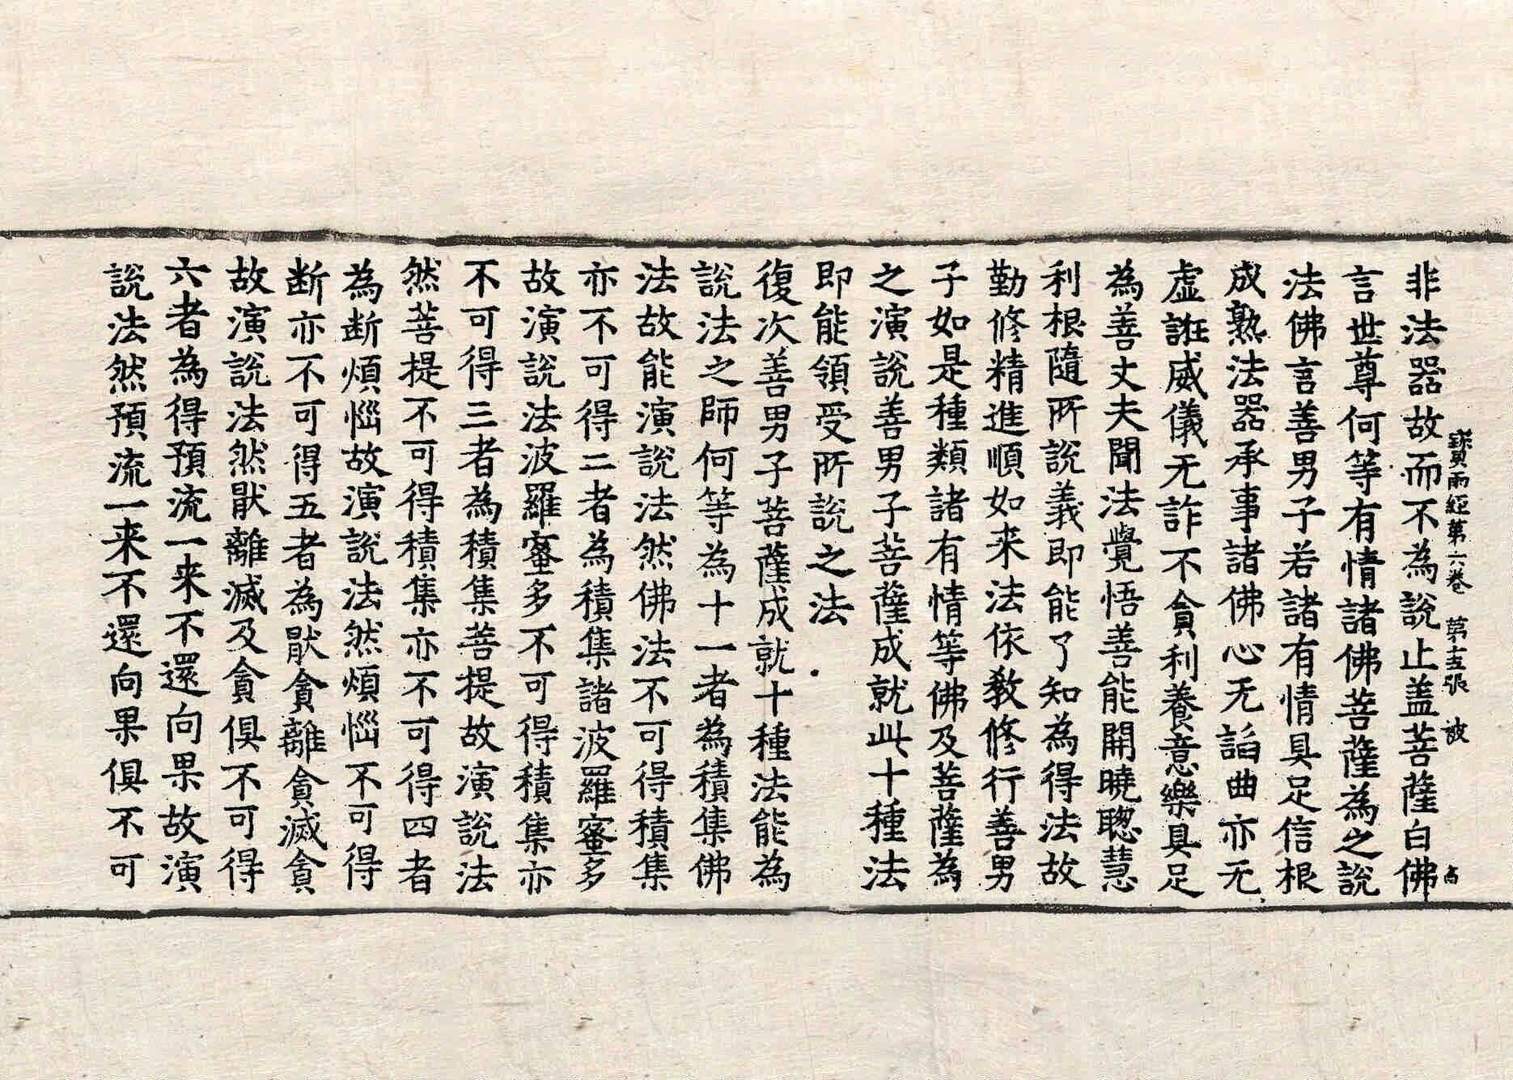 寳雨經第六卷　第十五張　彼
非法器故而不為說止盖菩薩白佛
言世尊何等有情諸佛菩薩為之說
法佛言善男子若諸有情具足信根
成熟法器承事諸佛心无諂曲亦无
虛誑威儀无詐不貪利養意樂具足
為善丈夫聞法覺悟善能開曉聦慧
利根隨所說義即能了知為得法故
勤修精進順如来法依教修行善男
子如是種類諸有情等佛及菩薩為
之演說善男子菩薩成就此十種法
即能領受所說之法
復次善男子菩薩成就十種法能為
說法之師何等為十一者為積集佛
法故能演說法然佛法不可得積集
亦不可得二者為積集諸波羅蜜多
故演說法波羅蜜多不可得積集亦
不可得三者為積集菩提故演說法
然菩提不可得積集亦不可得四者
為断煩惱故演說法然煩惱不可得
断亦不可得五者為猒貪離貪滅貪
故演說法然猒離滅及貪俱不可得
六者為得預流一来不還向果故演
說法然預流一来不還向果俱不可